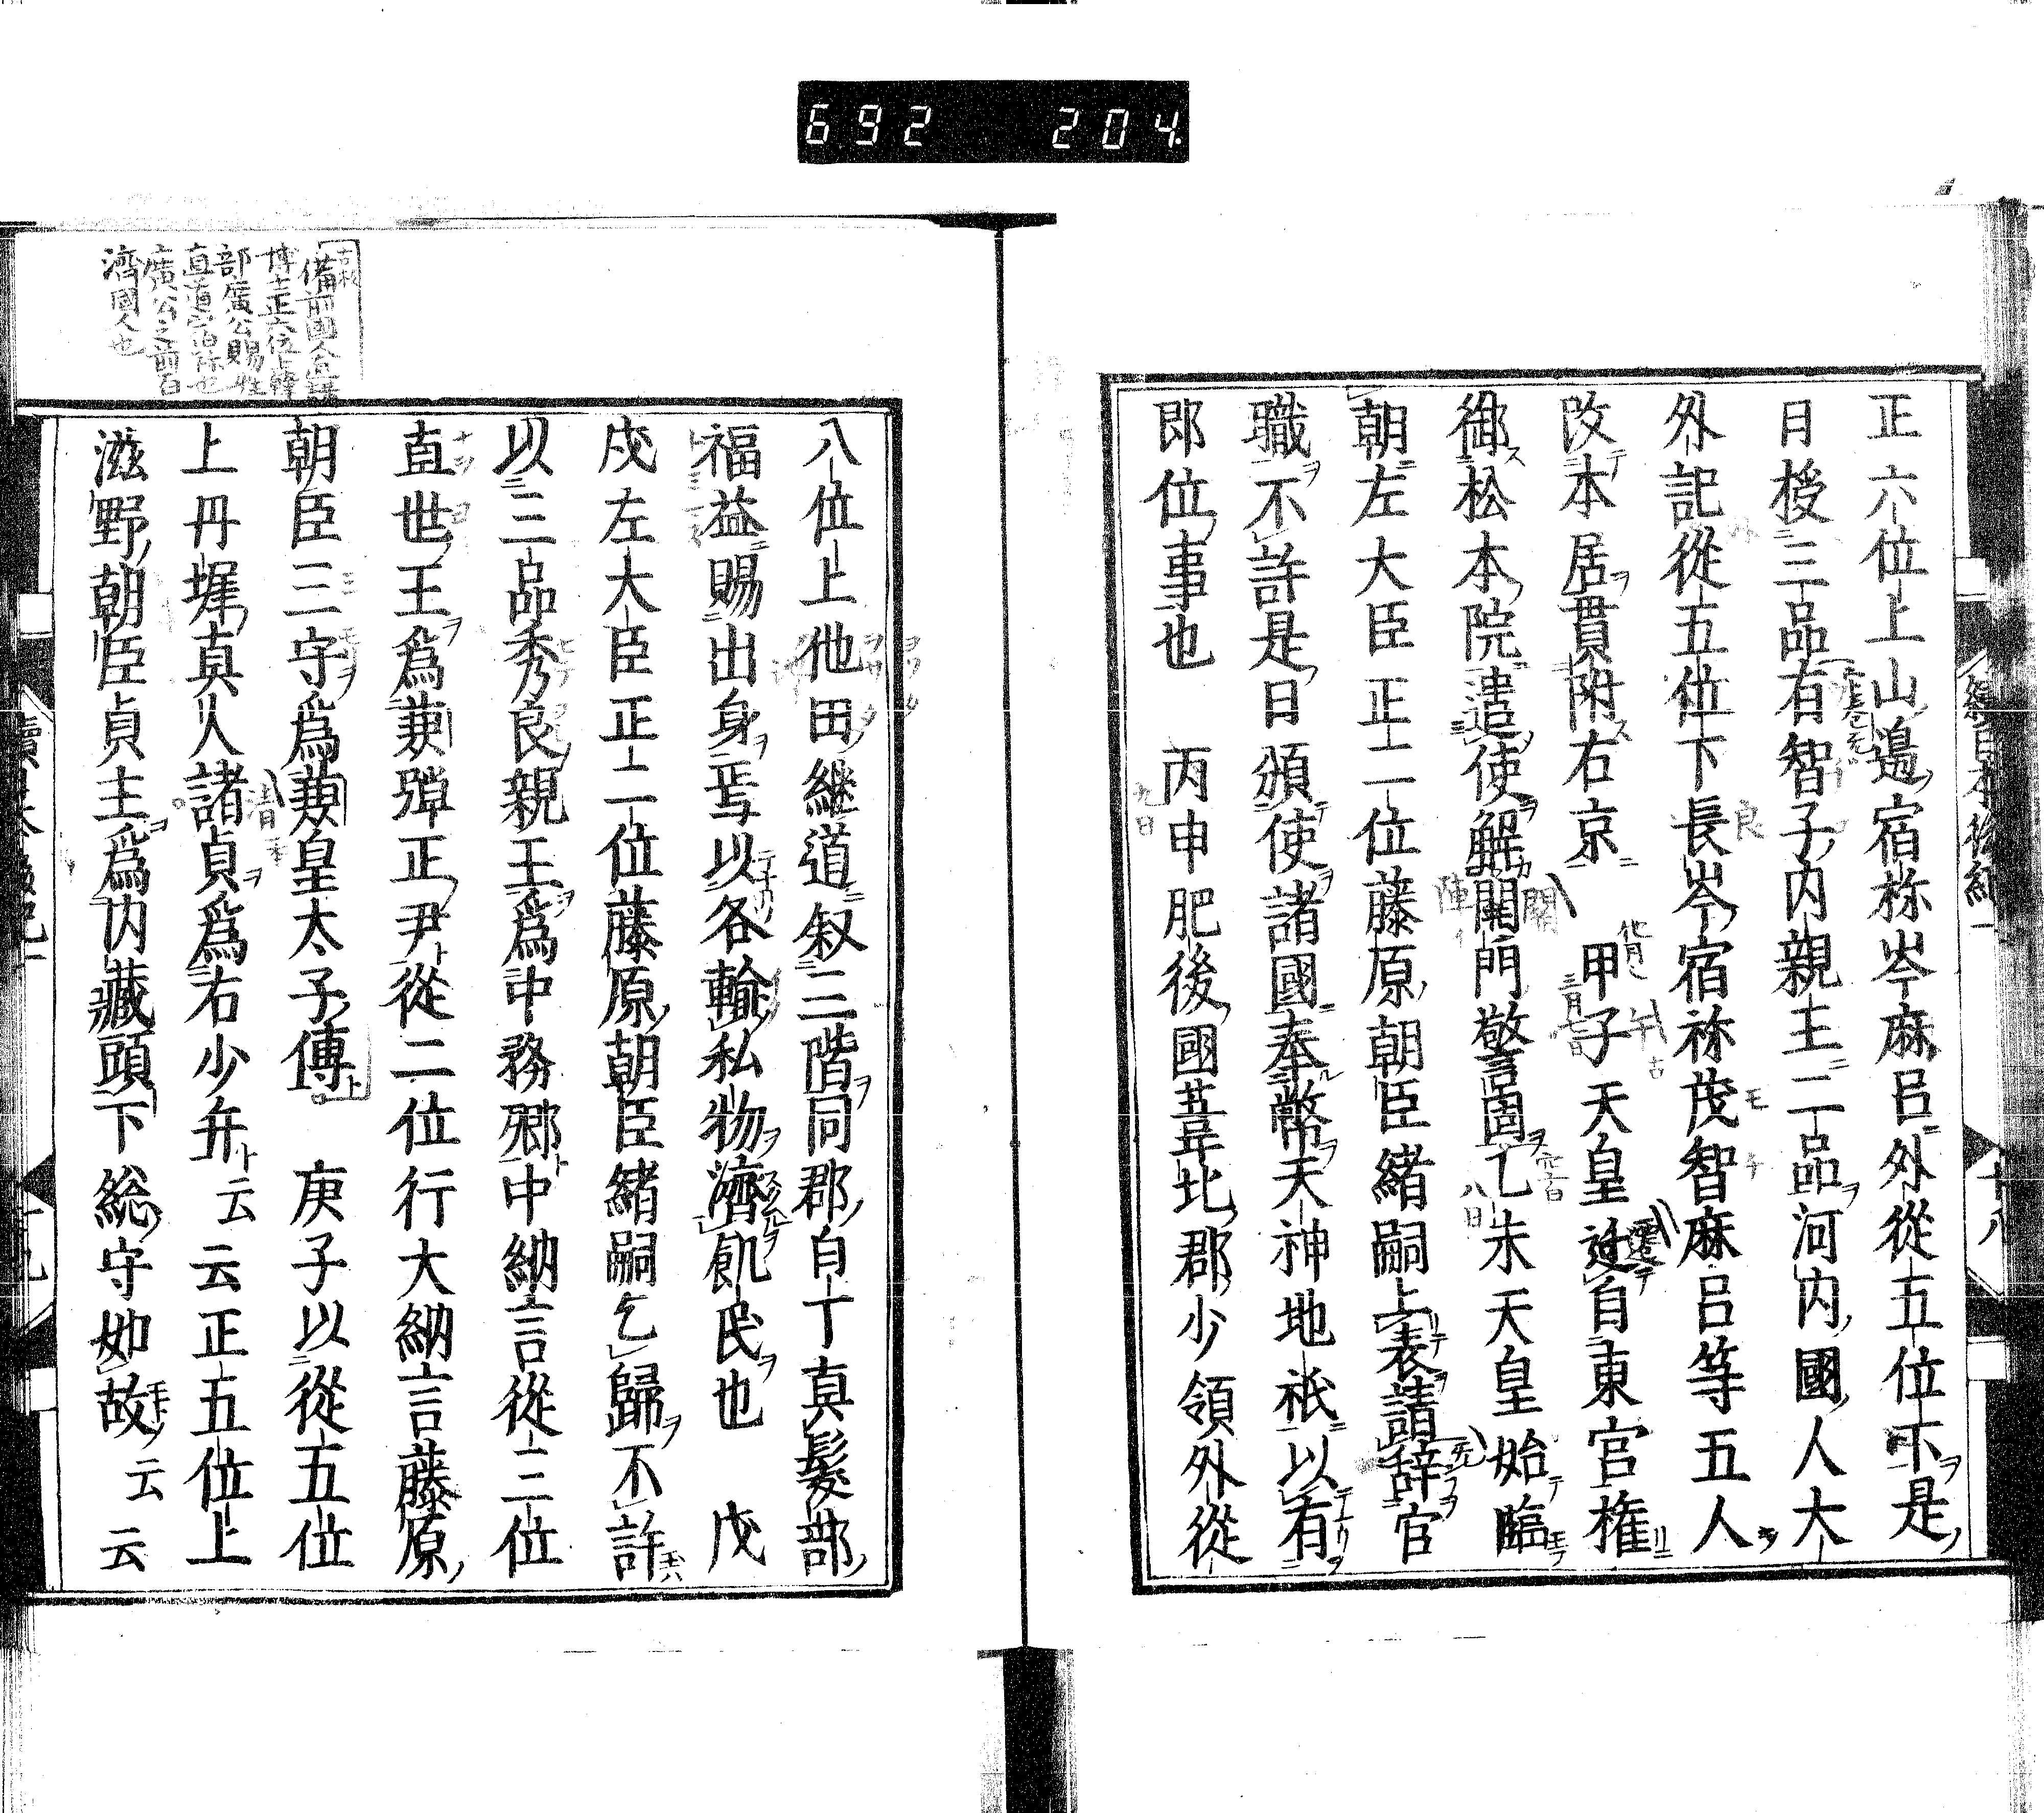 692 204
正六位上山邉宿祢岑麻呂外從五位下是
日授三品有智子内親王二品河内國人大
外記從五位下長岑宿祢茂智麻呂等五人
改本居貫附右京 甲子天皇 自東宮権
御松本院遣使解開門警固乙未天皇始臨
朝左大臣正二位藤原朝臣緒嗣上表請辞官
職不許是日頒使諸國奉幣天神地祇以有
即位事也 丙申肥後國葦北郡少領外從
八位上他田継道叙三階同郡白丁真髮部
福益賜出身焉以各輸私物濟飢民也 戊
戌左大臣正二位藤原朝臣緒嗣乞歸不許
以三品秀良親王爲中務卿中納言從三位
直世王爲兼弾正尹從二位行大納言藤原
朝臣三守爲兼皇太子傅 庚子以從五位
上丹墀真人諸貞爲右少弁云云正五位上
滋野朝臣貞主爲内藏頭下総守如故云云
備前國人
博士正六位上韓
部廣公賜姓
直道宿祢也
廣公之前百
濟國人也